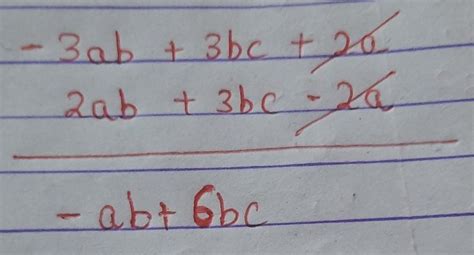 - 3ab + 3bc + 2a
2ab + 3bc - 2a
- ab + 6bc